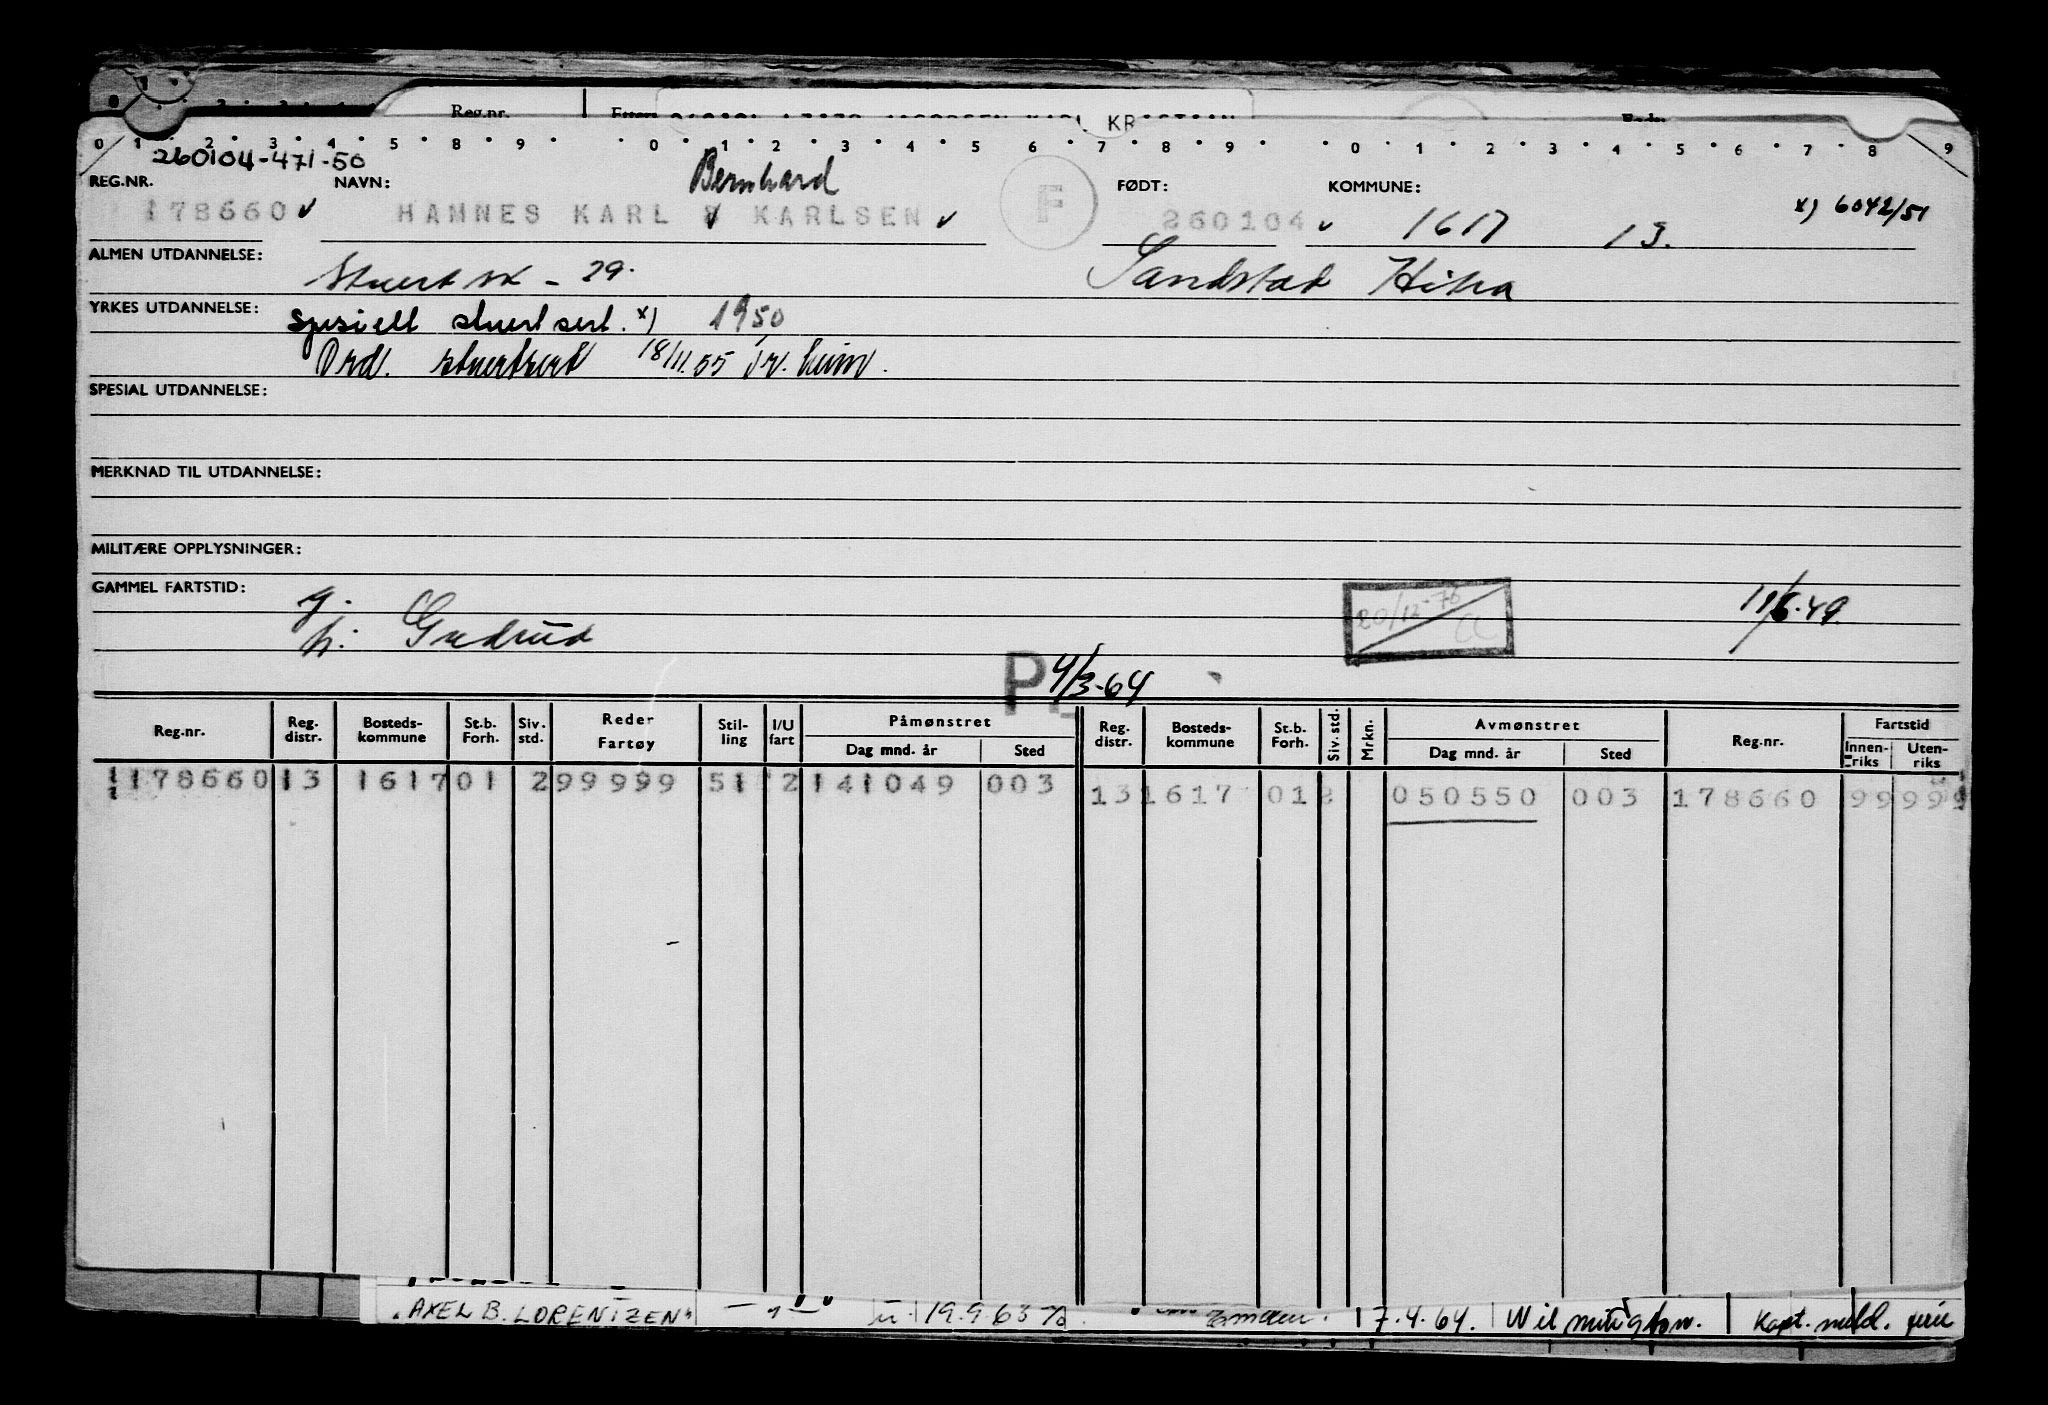 Reg.nr.
0 1 2 3 4 5 8 9 0 1 2 3 4 5 6 7 8 9 0 1 2 3 4 5 6 7 8 9
260104-471-50
REG.NR. NAVN: Bernhard F FØDT: KOMMUNE:
178660 HAMNES KARL B KARLSEN 260104 1617 13. x) 6042/51
ALMEN UTDANNELSE: Stuertsk - 29. Sandstad Hitra
YRKES UTDANNELSE: Spesiell stuertsert. x) 1950
Ord. stuertsert 18/11.55 Tr.heim.
SPESIAL UTDANNELSE:
MERKNAD TIL UTDANNELSE:
MILITÆRE OPPLYSNINGER:
GAMMEL FARTSTID: g. 20/12-76 CC 11/6-49
h. Gudrud
P 4/3-64
Reg.nr. Reg. distr. Bosteds-kommune St.b. Forh. Siv. std. Reder Fartøy Stil-ling I/U fart Påmønstret Dag mnd. år Sted Reg. distr. Bosteds-kommune St.b. Forh. Siv. std. Mrkn. Avmønstret Dag mnd. år Sted Reg.nr. Fartstid Innen-riks Uten-riks
178660 13 1617 01 2 99999 51 2 141049 003 13 1617 01 2 050550 003 178660 99 999
"AXEL B. LORENTZEN" — " — u. 19.9.63 Emden. 17.4.64. Wilmington. Kapt. meld. ferie